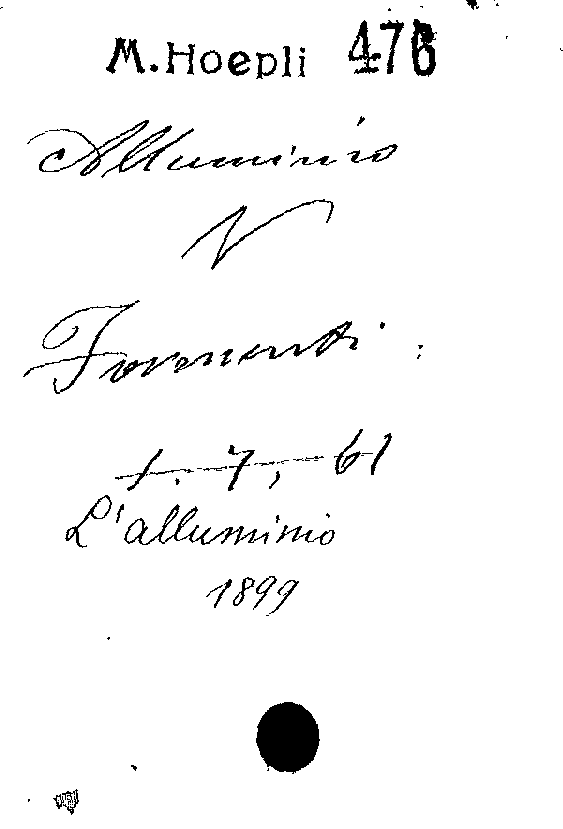 M. Hoepli 476
Alluminio
V
Formenti:
1. 7, 61
L'alluminio
1899